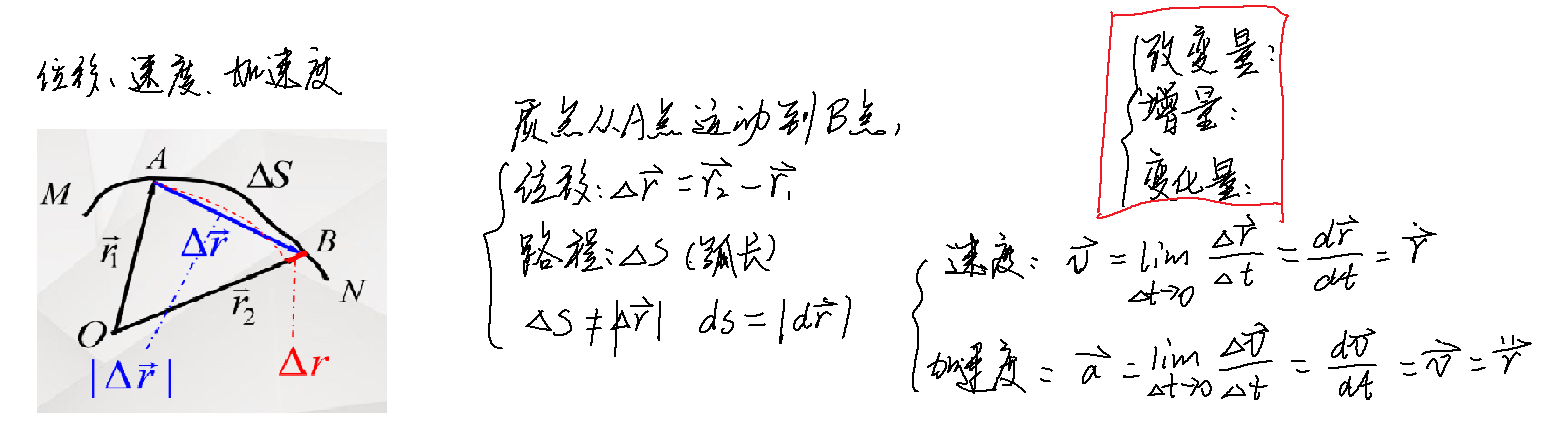 位移、速度、加速度
A
ΔS
M
Δr⃗
B
r⃗₁
N
r⃗₂
O
|Δr⃗|
Δr
质点从A点运动到B点,
位移: Δr⃗ = r⃗₂ - r⃗₁
路程: ΔS (弧长)
ΔS ≠ |Δr⃗|  ds = |dr⃗|
改变量:
增量:
变化量:
速度: v⃗ = lim Δt→0 Δr⃗/Δt = dr⃗/dt = ṙ⃗
加速度 = a⃗ = lim Δt→0 Δv⃗/Δt = dv⃗/dt = v̇⃗ = r̈⃗